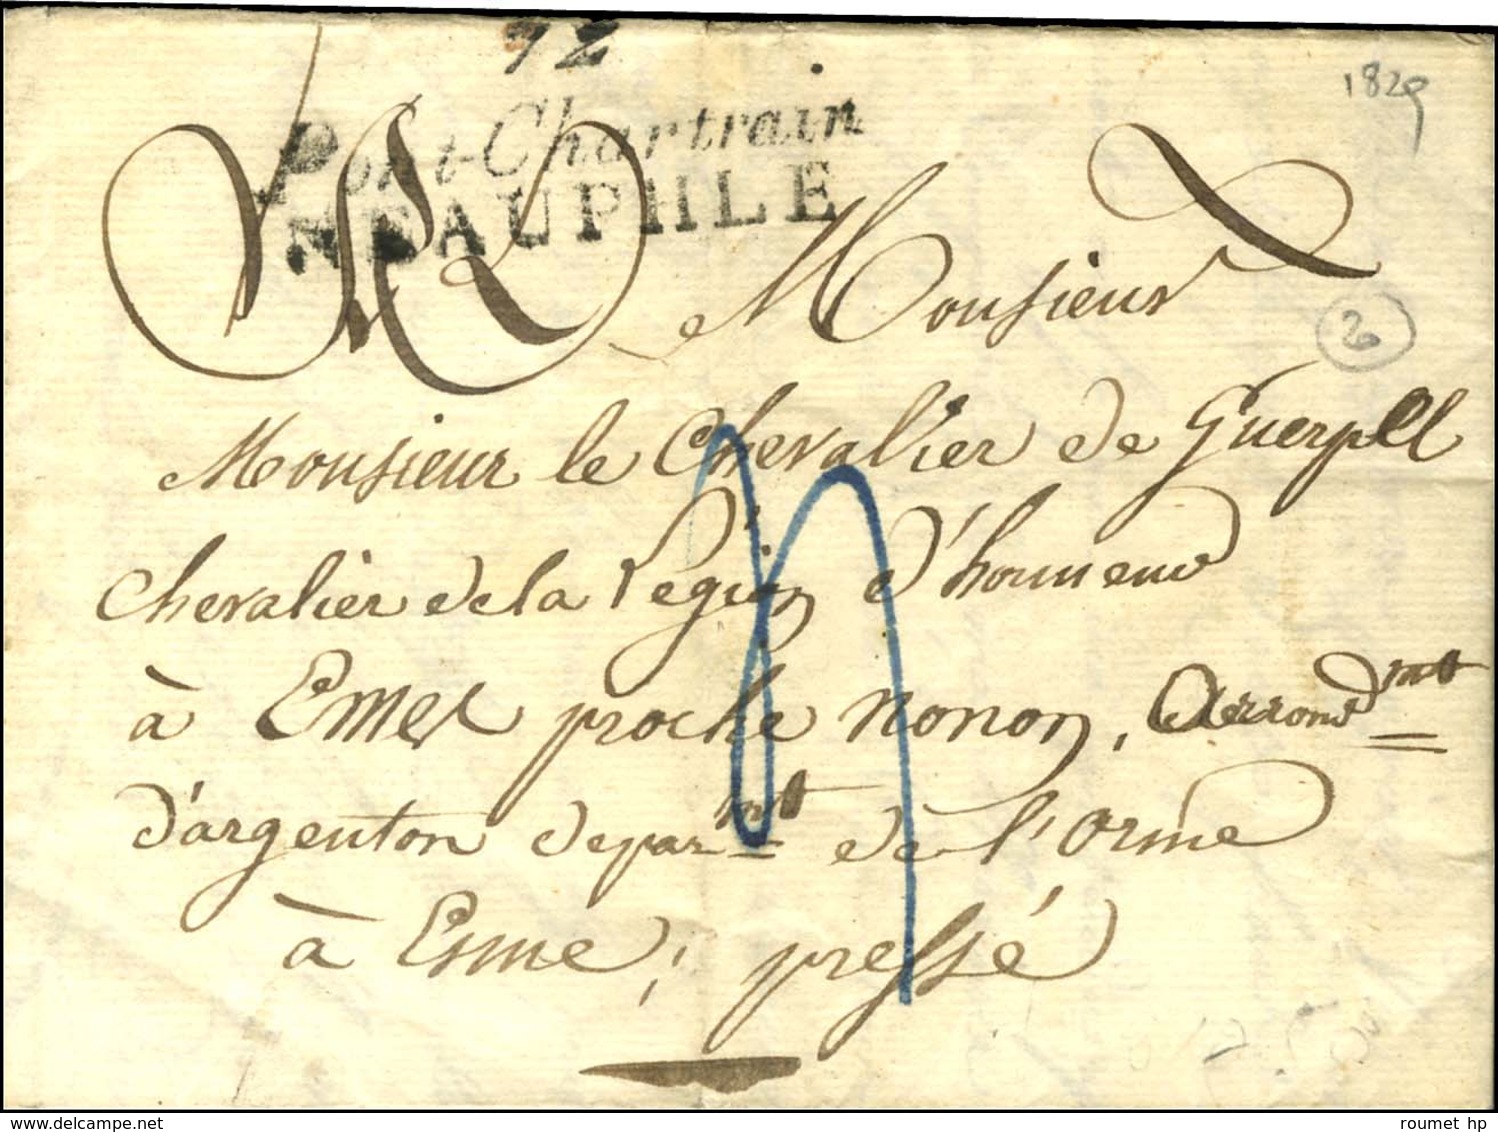 72
1829
Pont-Chartrain
NEAUPHLE
Monsieur
2
Monsieur le Chevalier de Guerpel
chevalier de la Légion d'honneur
à Emes proche nonon, Arrond.mt
d'argenton depar.mt de l'orne
à Esme; pressé
roumet hp
delcampe.net